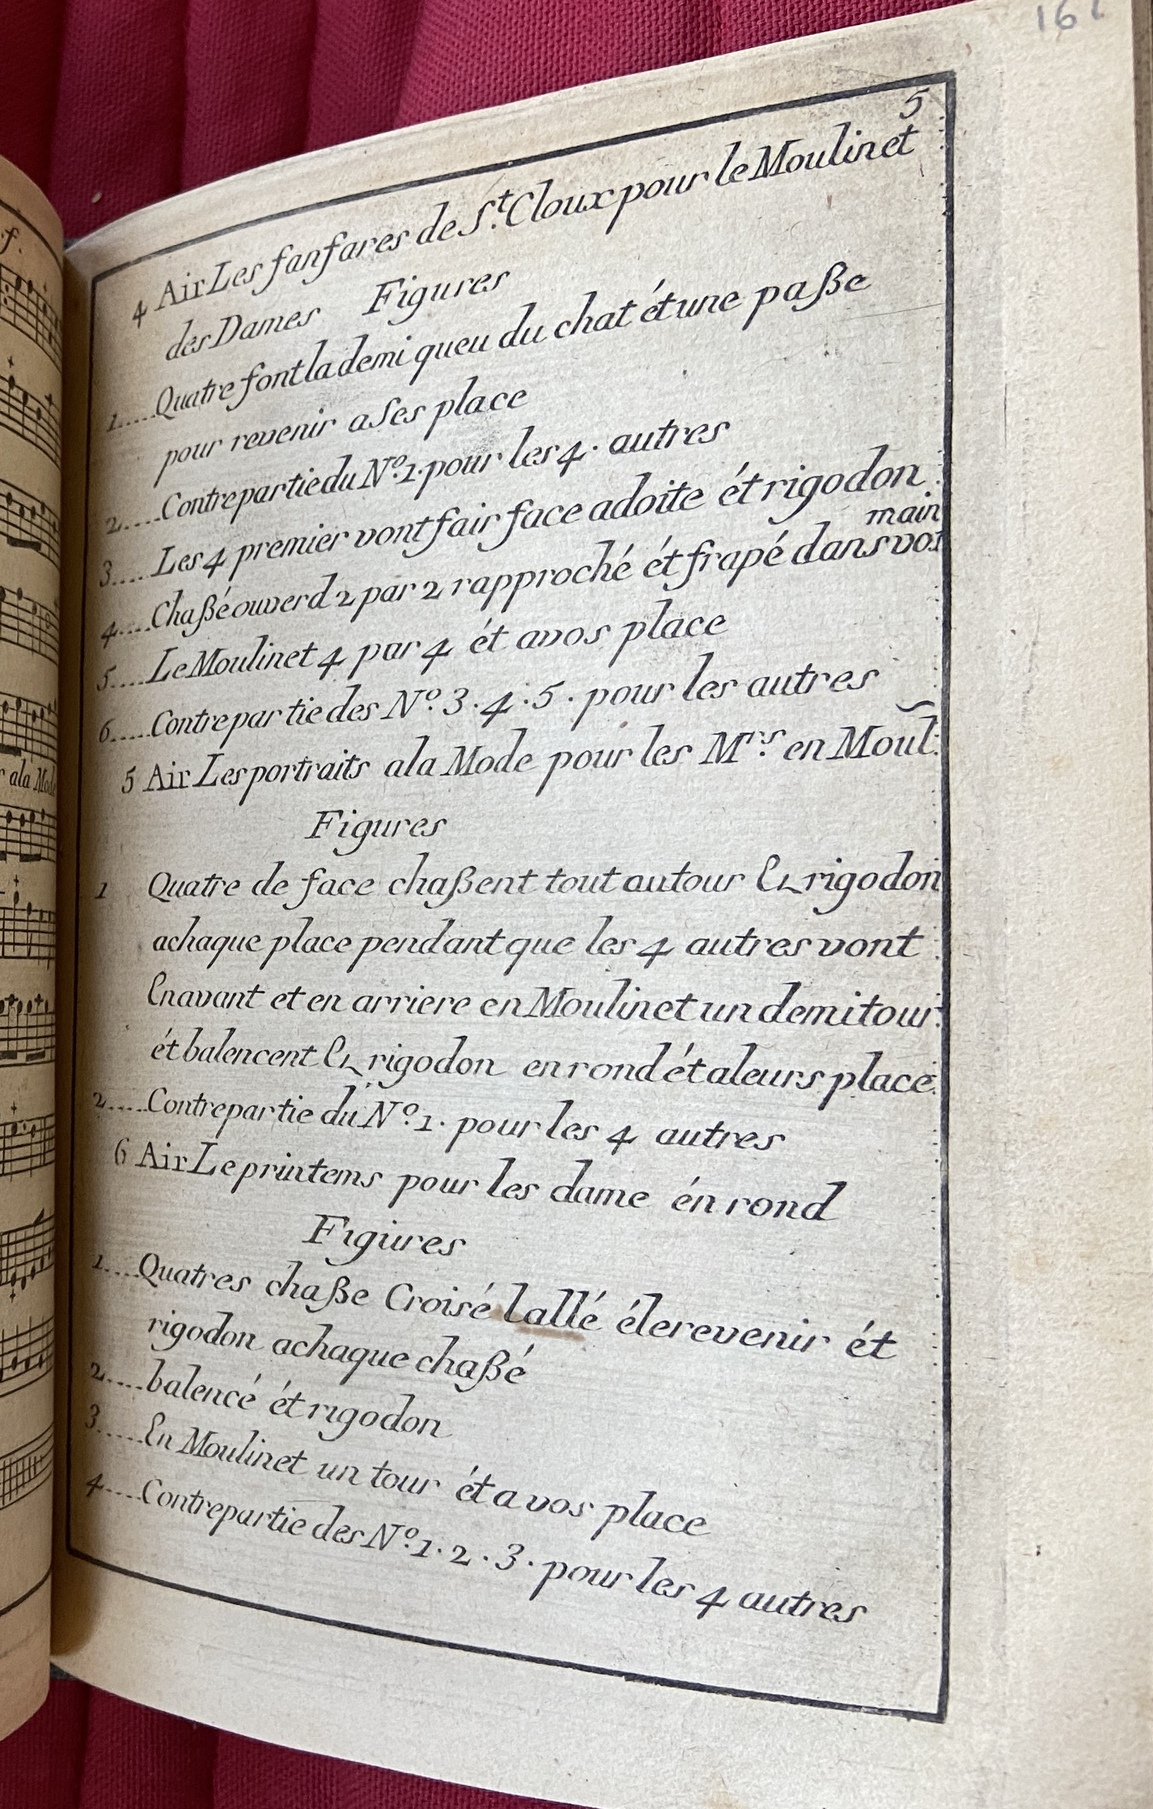 162
5
4 Air Les fanfares de St. Cloux pour le Moulinet
des Dames Figures
1.... Quatre font la demi queu du chat ét une paße
pour revenir a Ses place
2.... Contrepartie du No. 1. pour les 4. autres
3.... Les 4 premier vont fair face adoite ét rigodon
main
4.... Chaßé ouverd 2 par 2 rapproché ét frapé dans vos
5.... Le Moulinet 4 par 4 ét avos place
6.... Contrepartie des No. 3. 4. 5. pour les autres
5 Air Les portraits ala Mode pour les Mrs. en Moul.
Figures
1 Quatre de face chaßent tout autour Et rigodon
achaque place pendant que les 4 autres vont
Enavant et en arriere en Moulinet un demi tour
ét balencent Et rigodon en rond ét aleurs place
2.... Contrepartie du No. 1. pour les 4 autres
6 Air Le printems pour les dame én rond
Figures
1.... Quatres chaße Croisé lallé éle revenir ét
rigodon achaque chaßé
2.... balencé ét rigodon
3.... En Moulinet un tour ét a vos place
4.... Contrepartie des No. 1. 2. 3. pour les 4 autres
f.
ala Mode